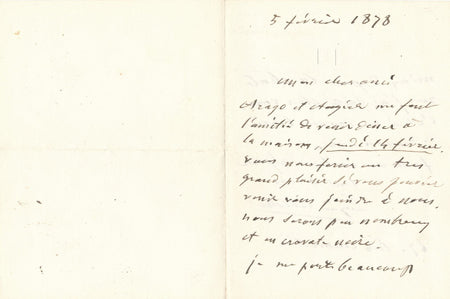 5 février 1878
Mon cher ami
Arago et Augier me font
l'amitié de venir dîner à
la maison, jeudi 14 février.
vous nous feriez un très
grand plaisir si vous pouviez
venir vous joindre à nous.
nous serons peu nombreux
et en cravate noire.
je me porte beaucoup